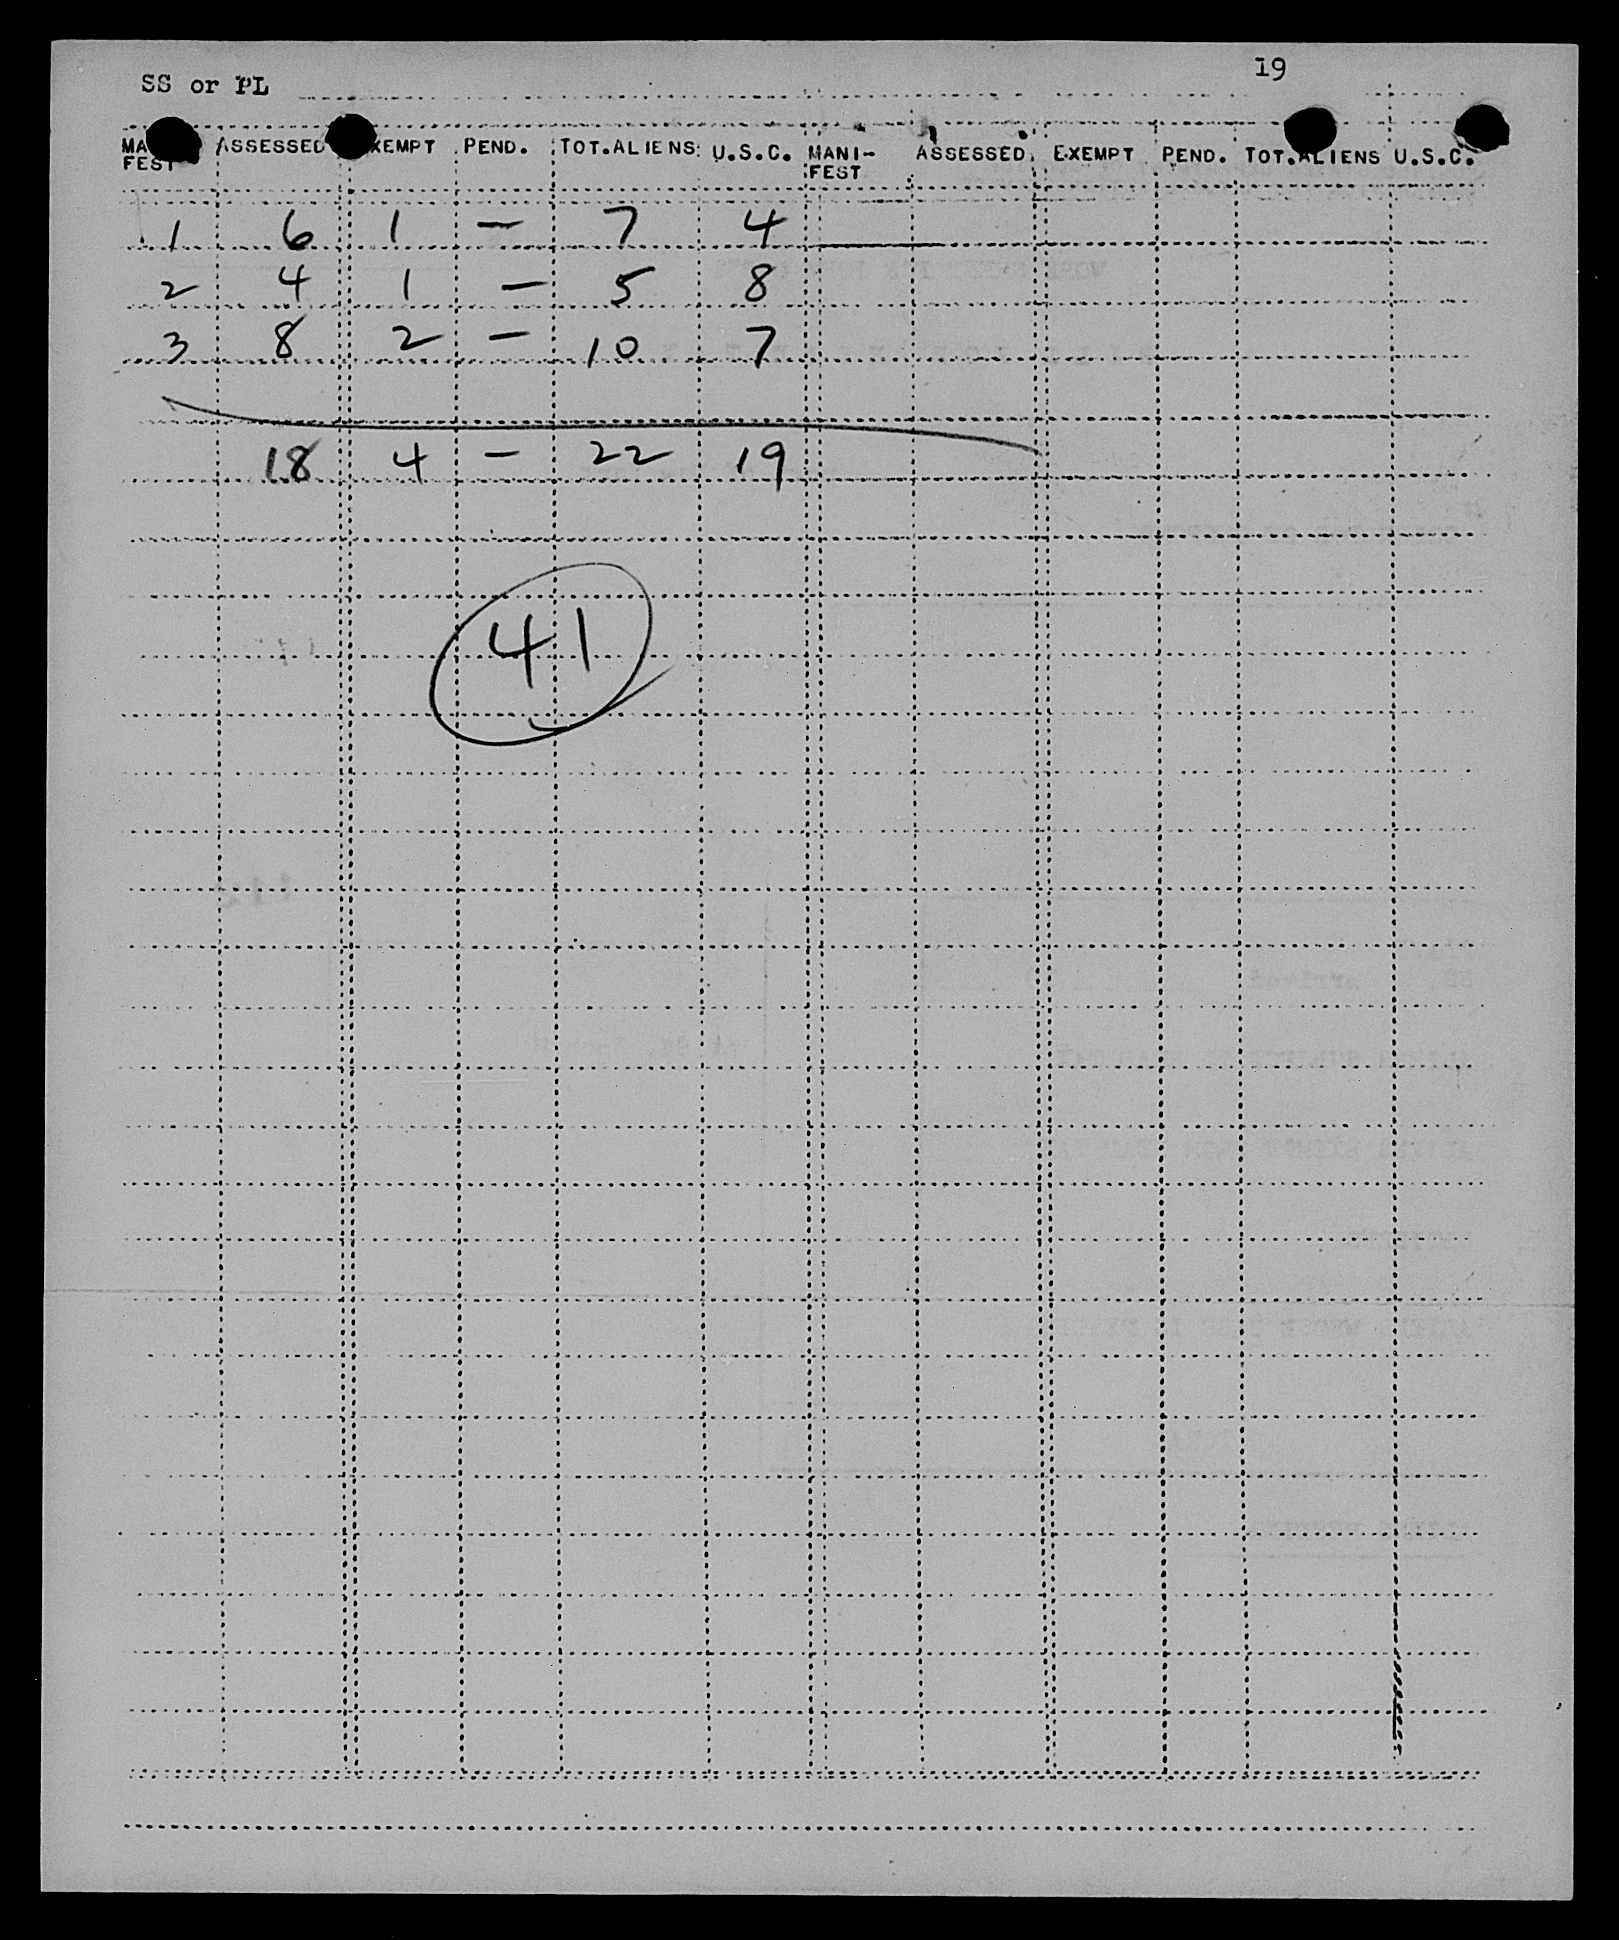 19
SS or PL
MA FEST ASSESSED XEMPT PEND. TOT.ALIENS U.S.C. MANI-FEST ASSESSED EXEMPT PEND. TOT.ALIENS U.S.C.
1 6 1 — 7 4
2 4 1 — 5 8
3 8 2 — 10 7
18 4 — 22 19
41